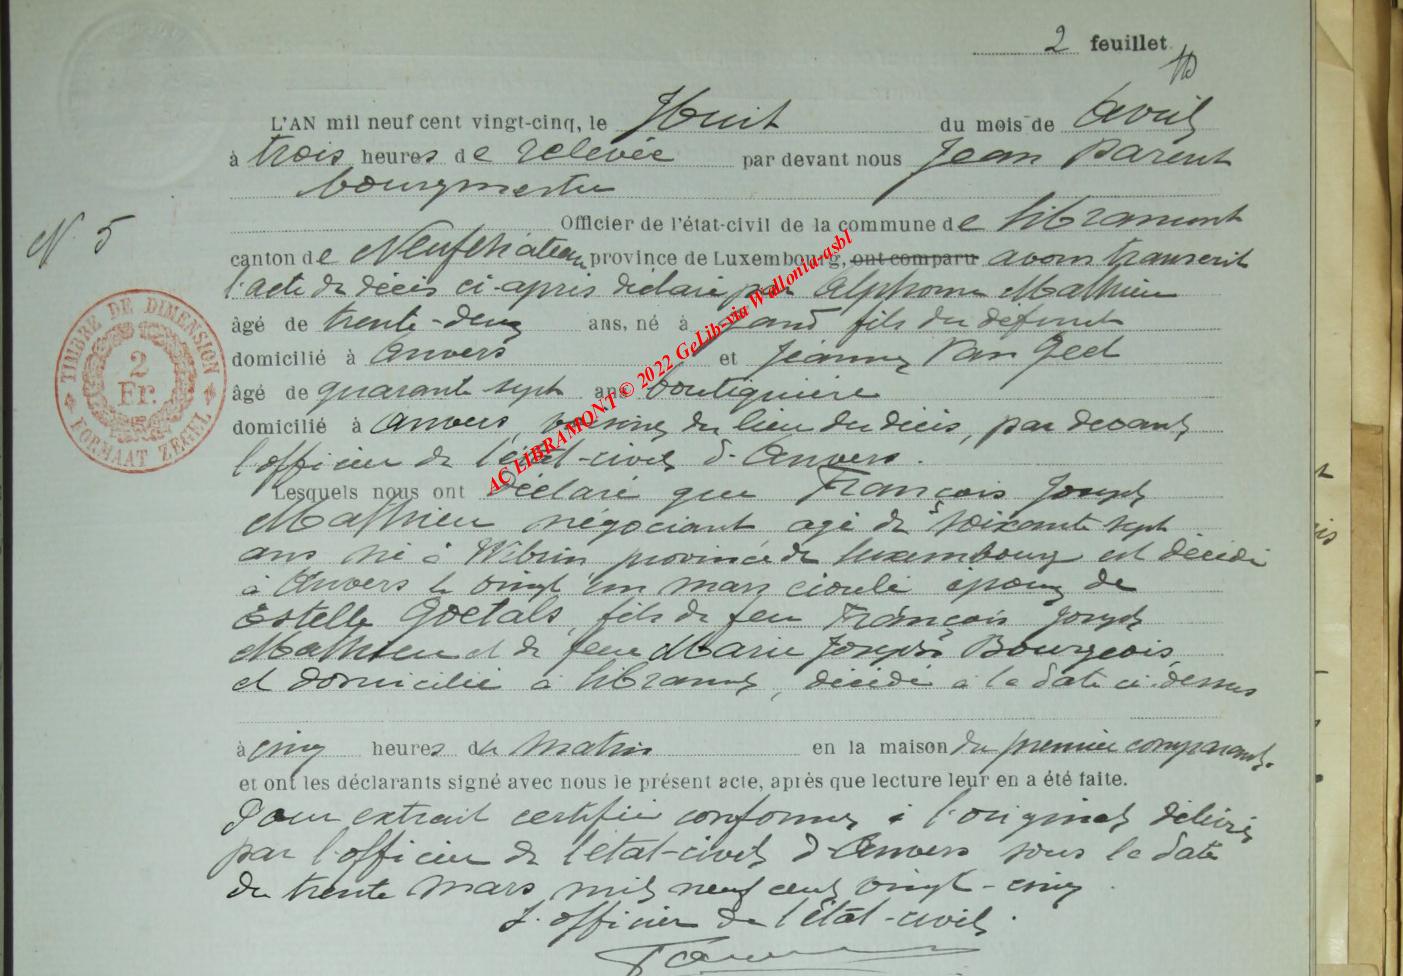 2 feuillet
L'AN mil neuf cent vingt-cinq, le Huit du mois de Avril
à trois heures de relevée par devant nous Jean Parent
bourgmestre
N. 5
Officier de l'état-civil de la commune de Libramont
canton de Neufchâteau province de Luxembourg, ont comparu avons transcrit
l'acte de décès ci-après déclaré par Alphonse Mathieu
âgé de trente-deux ans, né à Gand fils du defunt
domicilié à Anvers et Jeanne Van Geel
âgé de quarante sept ans boutiquière
domicilié à Anvers, voisine du lieu du décès, par devant
l'officier de l'état-civil d'Anvers.
Lesquels nous ont déclaré que François Joseph
Mathieu négociant agé de soixante sept
ans né à Wibrin province de Luxembourg est décédé
à Anvers le vingt un mars écoulé époux de
Estelle Goetals, fils de feu François Joseph
Mathieu et de feue Marie Joseph Bourgeois,
et domicilié à Libramont, décédé à la date ci-dessus
à cinq heures du matin en la maison du premier comparant.
et ont les déclarants signé avec nous le présent acte, après que lecture leur en a été faite.
Pour extrait certifié conforme à l'original délivré
par l'officier de l'état-civil d'Anvers sous la date
du trente mars mil neuf cent vingt-cinq.
L'officier de l'état-civil.
TIMBRE DE DIMENSION
2
Fr.
FORMAAT ZEGEL
AC LIBRAMONT © 2022 GeLib-via Wallonia-asbl